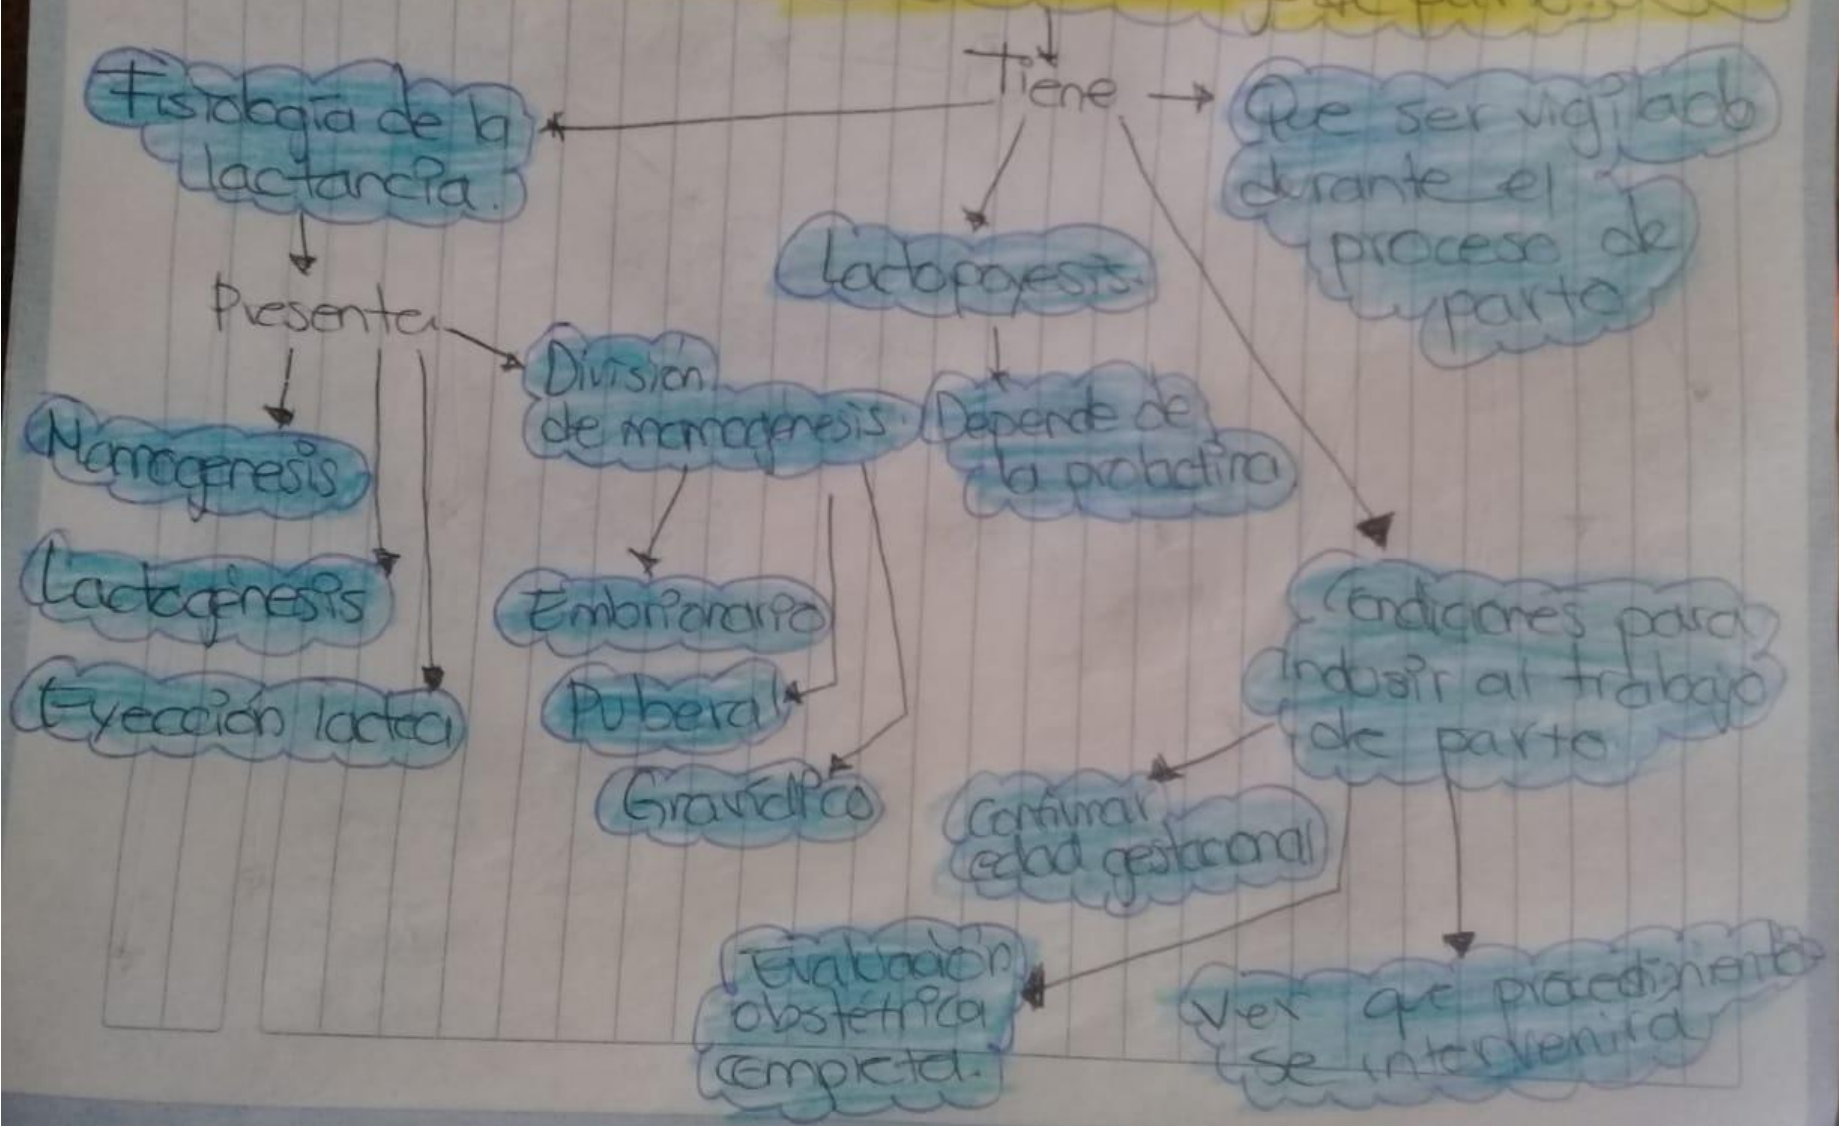 Tiene
Fisiología de la
lactancia.
Que ser vigilado
durante el
proceso de
parto
Lactopoyesis.
Presenta
División
de mamogénesis.
Depende de
la prolactina
Mamogenesis
Lactogénesis
Eyección lactea
Embrionario
Puberal
Gravídico
Condiciones para
indusir al trabajo
de parto
Confirmar
edad gestacional
Evaluación
obstétrica
completa.
Ver que procedimiento
se intervenirá